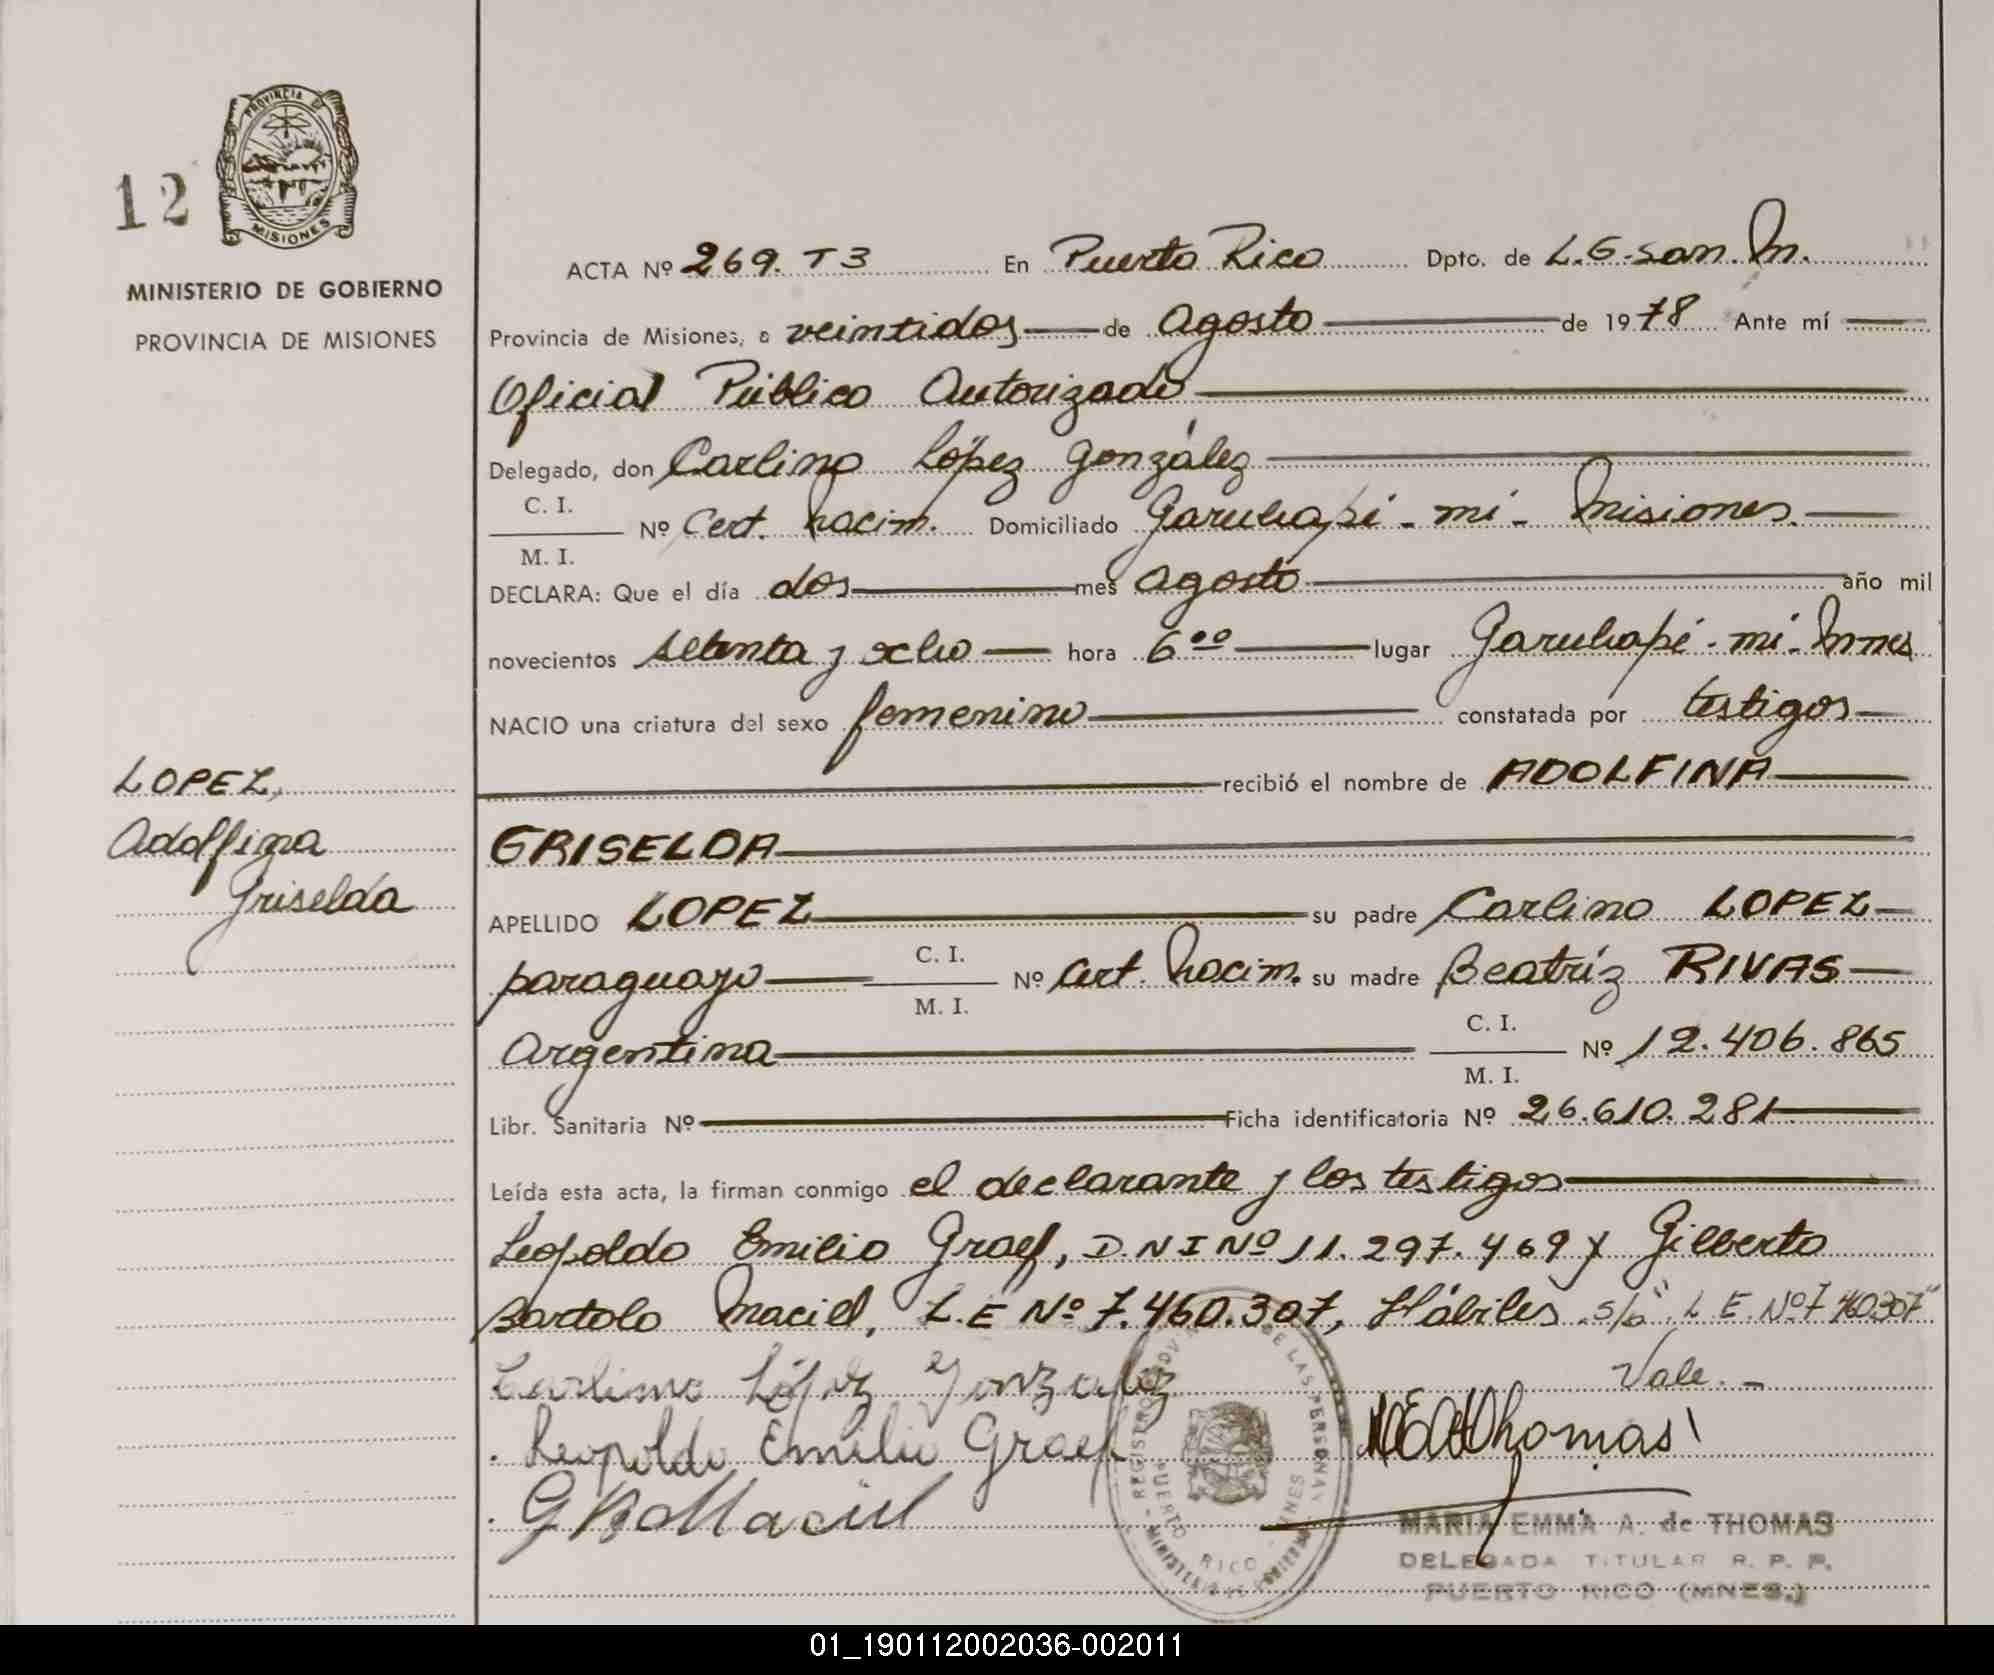 12
PROVINCIA DE
MISIONES
MINISTERIO DE GOBIERNO
PROVINCIA DE MISIONES
LOPEZ,
Adolfina
Griselda
ACTA Nº 269. T 3 En Puerto Rico Dpto. de L.G. San. M.
Provincia de Misiones, a veintidos de agosto de 1978 Ante mí
Oficial Público Autorizado
Delegado, don Carlino López González
C. I.
Nº Cert. nacim. Domiciliado Garuhapé - mí - Misiones.
M. I.
DECLARA: Que el día dos mes agosto año mil
novecientos setenta y ocho hora 6 00 lugar Garuhapé - mí - Mnes
NACIO una criatura del sexo femenino constatada por testigos
recibió el nombre de ADOLFINA
GRISELDA
APELLIDO LOPEZ su padre Carlino LOPEZ
C. I.
paraguayo Nº Cert. nacim. su madre Beatríz RIVAS
M. I.
C. I.
Argentina Nº 12.406.865
M. I.
Libr. Sanitaria Nº Ficha identificatoria Nº 26.610.281
Leída esta acta, la firman conmigo el declarante y los testigos
Leopoldo Emilio Graef, D.N I Nº 11.297.469 y Gilberto
Bartolo Maciel, L.E Nº 7.460.307, Hábiles. s/b "L E. Nº 7.460.307"
Carlino López Gonzalez Vale. -
Leopoldo Emilio Graef Thomas
G B Maciel
REGISTRO DE LAS PERSONAS
PUERTO RICO - MNES
MINISTERIO DE GOBIERNO
MARIA EMMA A. de THOMAS
DELEGADA TITULAR R. P. P.
PUERTO RICO (MNES.)
01_190112002036-002011